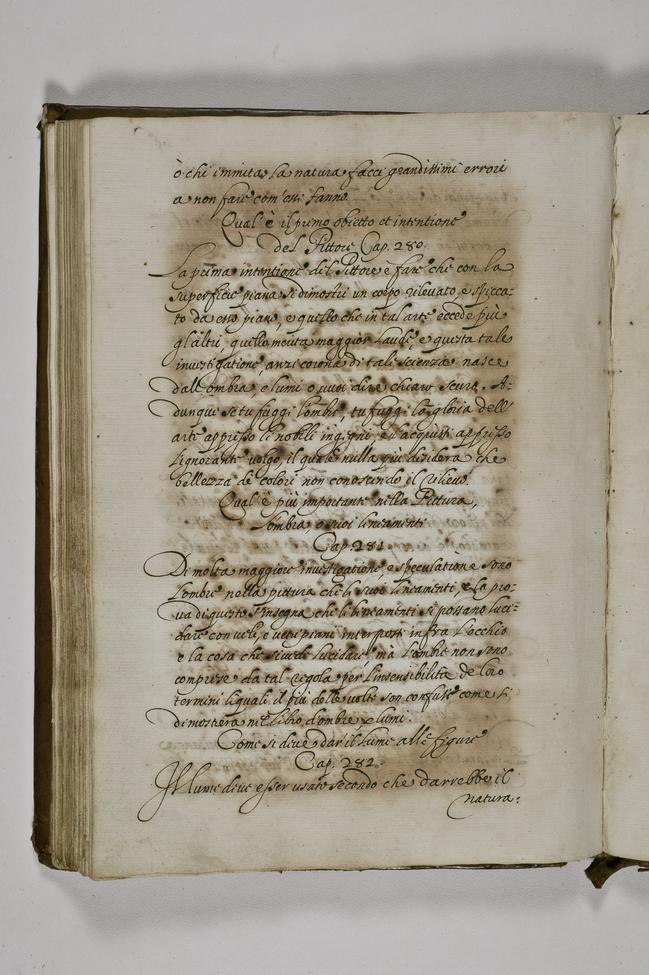 ò chi immita la natura facci grandissimi errori
a non fare com'essi fanno.
Qual'è il primo obietto et intentione
del Pittore Cap. 280.
La prima intentione del Pittore è fare che con la
superficie piana si dimostri un corpo rilevato, e spicca-
to da esso piano, e quello che in tal arte eccede più
gl'altri, quello merita maggior laude, e questa tale
investigatione, anzi corona di tale scienza nasce
dall'ombra e lumi o vuoi dire chiaro scuro. A-
dunque se tu fuggi l'ombre, tu fuggi la gloria dell'
arte appresso li nobili ingegni, e l'acquisti appresso
l'ignorante volgo, il quale nulla più desidera che
bellezza de colori non conoscendo il rilievo.
Qual'è più importante nella Pittura,
l'ombra, o suoi lineamenti
Cap. 281.
Di molta maggiore investigatione, e speculatione sono
l'ombre nella pittura che li suoi lineamenti, e la pro-
va di questo s'insegna che li lineamenti si possano luci-
dare con veli, e vetri piani interposti infra l'occhio
e la cosa che si vede lucidare, mà l'ombre non sono
comprese da tal regola per l'insensibilità de loro
termini li quali il più delle volte son confusi come si
dimosterà nel libro d'ombre e lumi.
Come si deve dar'il lume alle figure
Cap. 282.
Il lume deve esser usato secondo che darrebbe il
natura: